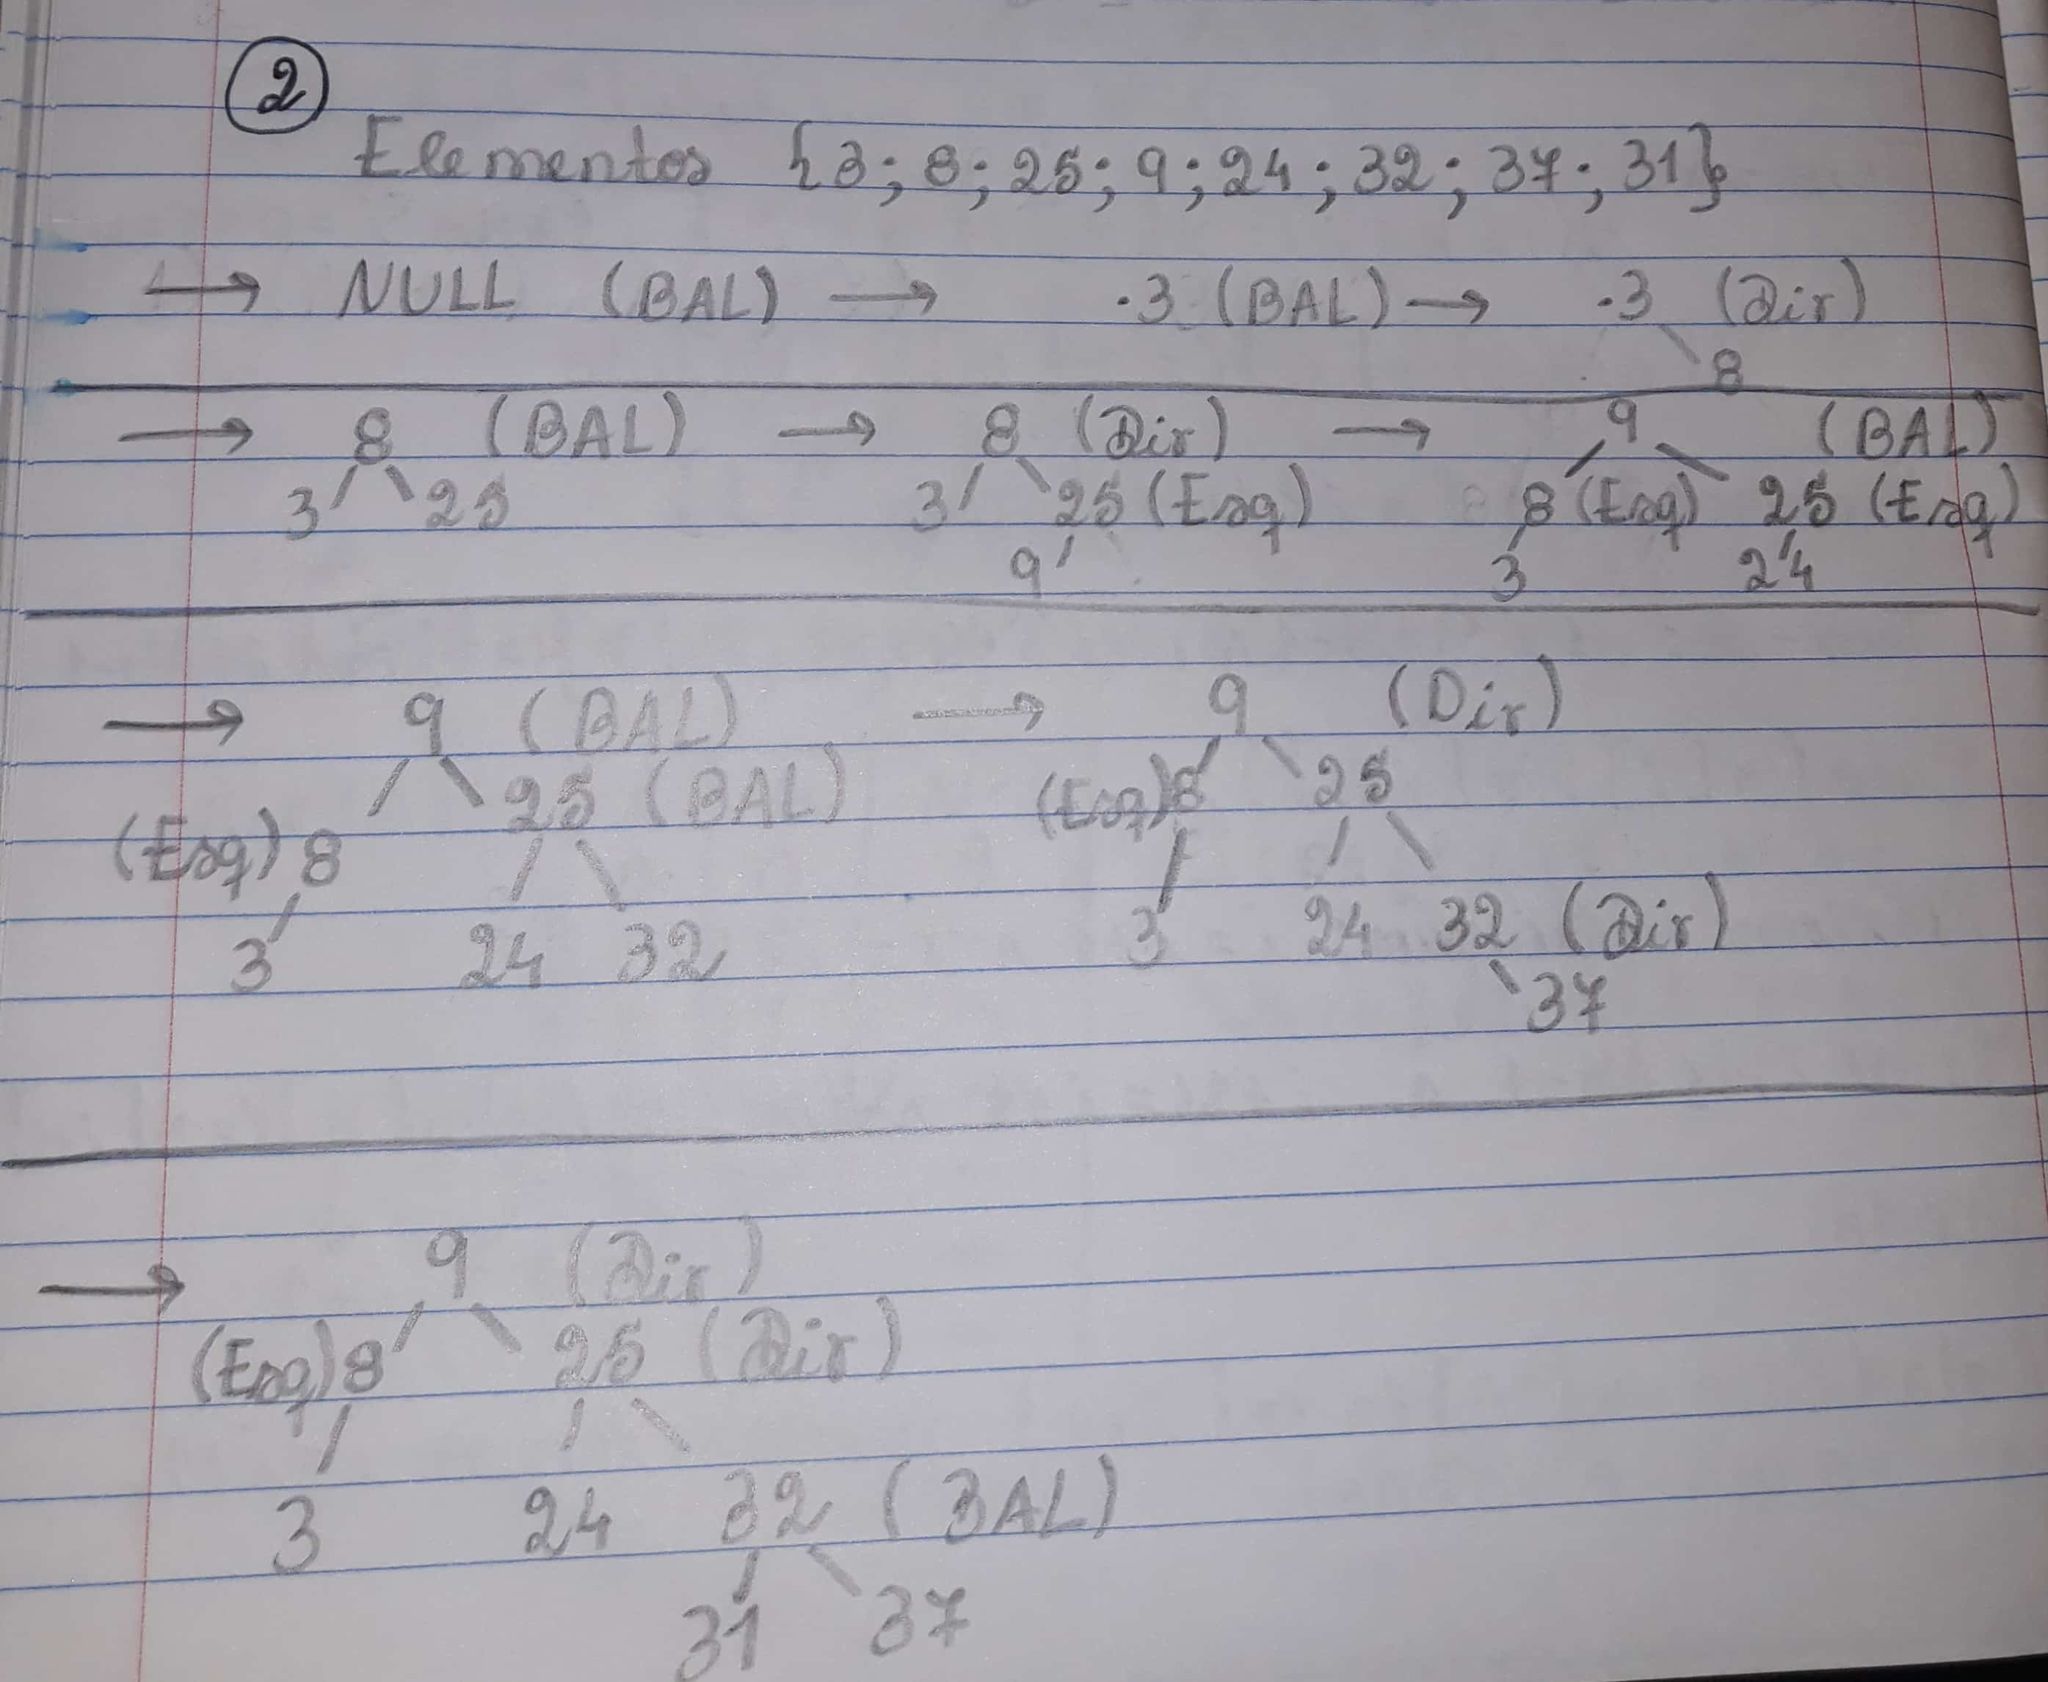 2
Elementos {3; 8; 25; 9; 24; 32; 37; 31}
→ NULL (BAL) → .3 (BAL) → .3 (Dir)
8
→ 8 (BAL) → 8 (Dir) → 9 (BAL)
3 25 3 25 (Esq) 8 (Esq) 25 (Esq)
9 3 24
→ 9 (BAL) → 9 (Dir)
25 (BAL) (Esq) 8 25
(Esq) 8
3 24 32 3 24 32 (Dir)
37
→ 9 (Dir)
(Esq) 8 25 (Dir)
3 24 32 (BAL)
31 37